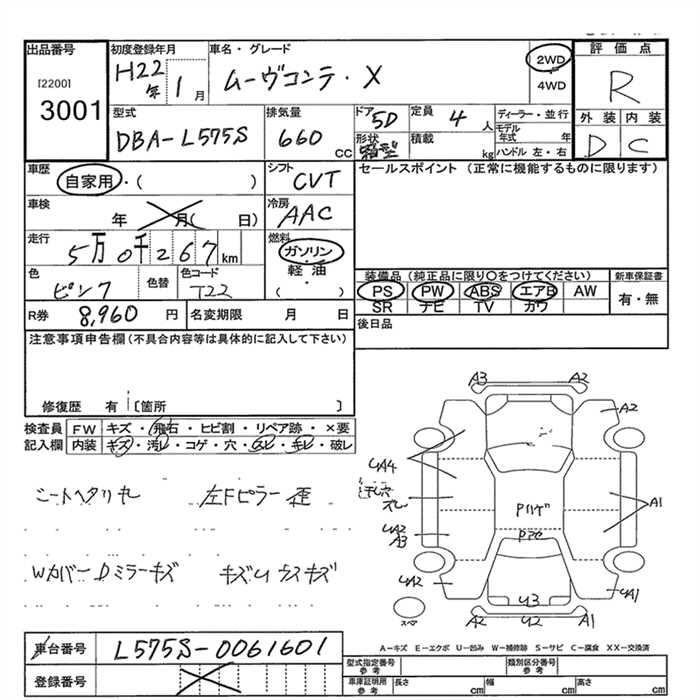 出品番号
[2200]
3001
初度登録年月
H22年 1月
車名・グレード
ムーヴコンテ・X
2WD
4WD
評価点
R
外装 内装
D C
型式
DBA-L575S
排気量
660 CC
ドア 5D
形状 箱型
定員 4 人
積載 kg
ディーラー・並行
モデル年式 年
ハンドル 左・右
車歴
自家用・( )
シフト
CVT
セールスポイント (正常に機能するものに限ります)
車検
年 月( 日)
冷房
AAC
走行
5万0千267km
燃料
ガソリン・
軽油
( )
色
ピンク
色替
色コード
T22
装備品 (純正品に限り○をつけてください)
PS PW ABS エアB AW
SR ナビ TV カワ
新車保証書
有・無
R券 8,960 円
名変期限 月 日
後日品
注意事項申告欄(不具合内容等は具体的に記入して下さい)
修復歴 有 [箇所 ]
検査員 FW キズ・飛石・ヒビ割・リペア跡・×要
記入欄 内装 キズ・汚レ・コゲ・穴・スレ・キレ・破レ
シートヘタリ 左Fピラー 歪
Wカバー Dミラーキズ キズU ウスキズ
A3 A2
A2
UA4
ズレ
A1
UA2
A3
Pハゲ
UA2
U3
UA1
A2 U2 A1
スペア
A-キズ E-エクボ U-凹み W-補修跡 S-サビ C-腐食 XX-交換済
車台番号 L575S-0061601
登録番号
型式指定番号
参考
類別区分番号
参考
車庫証明用
参考
長さ cm 幅 cm 高さ cm